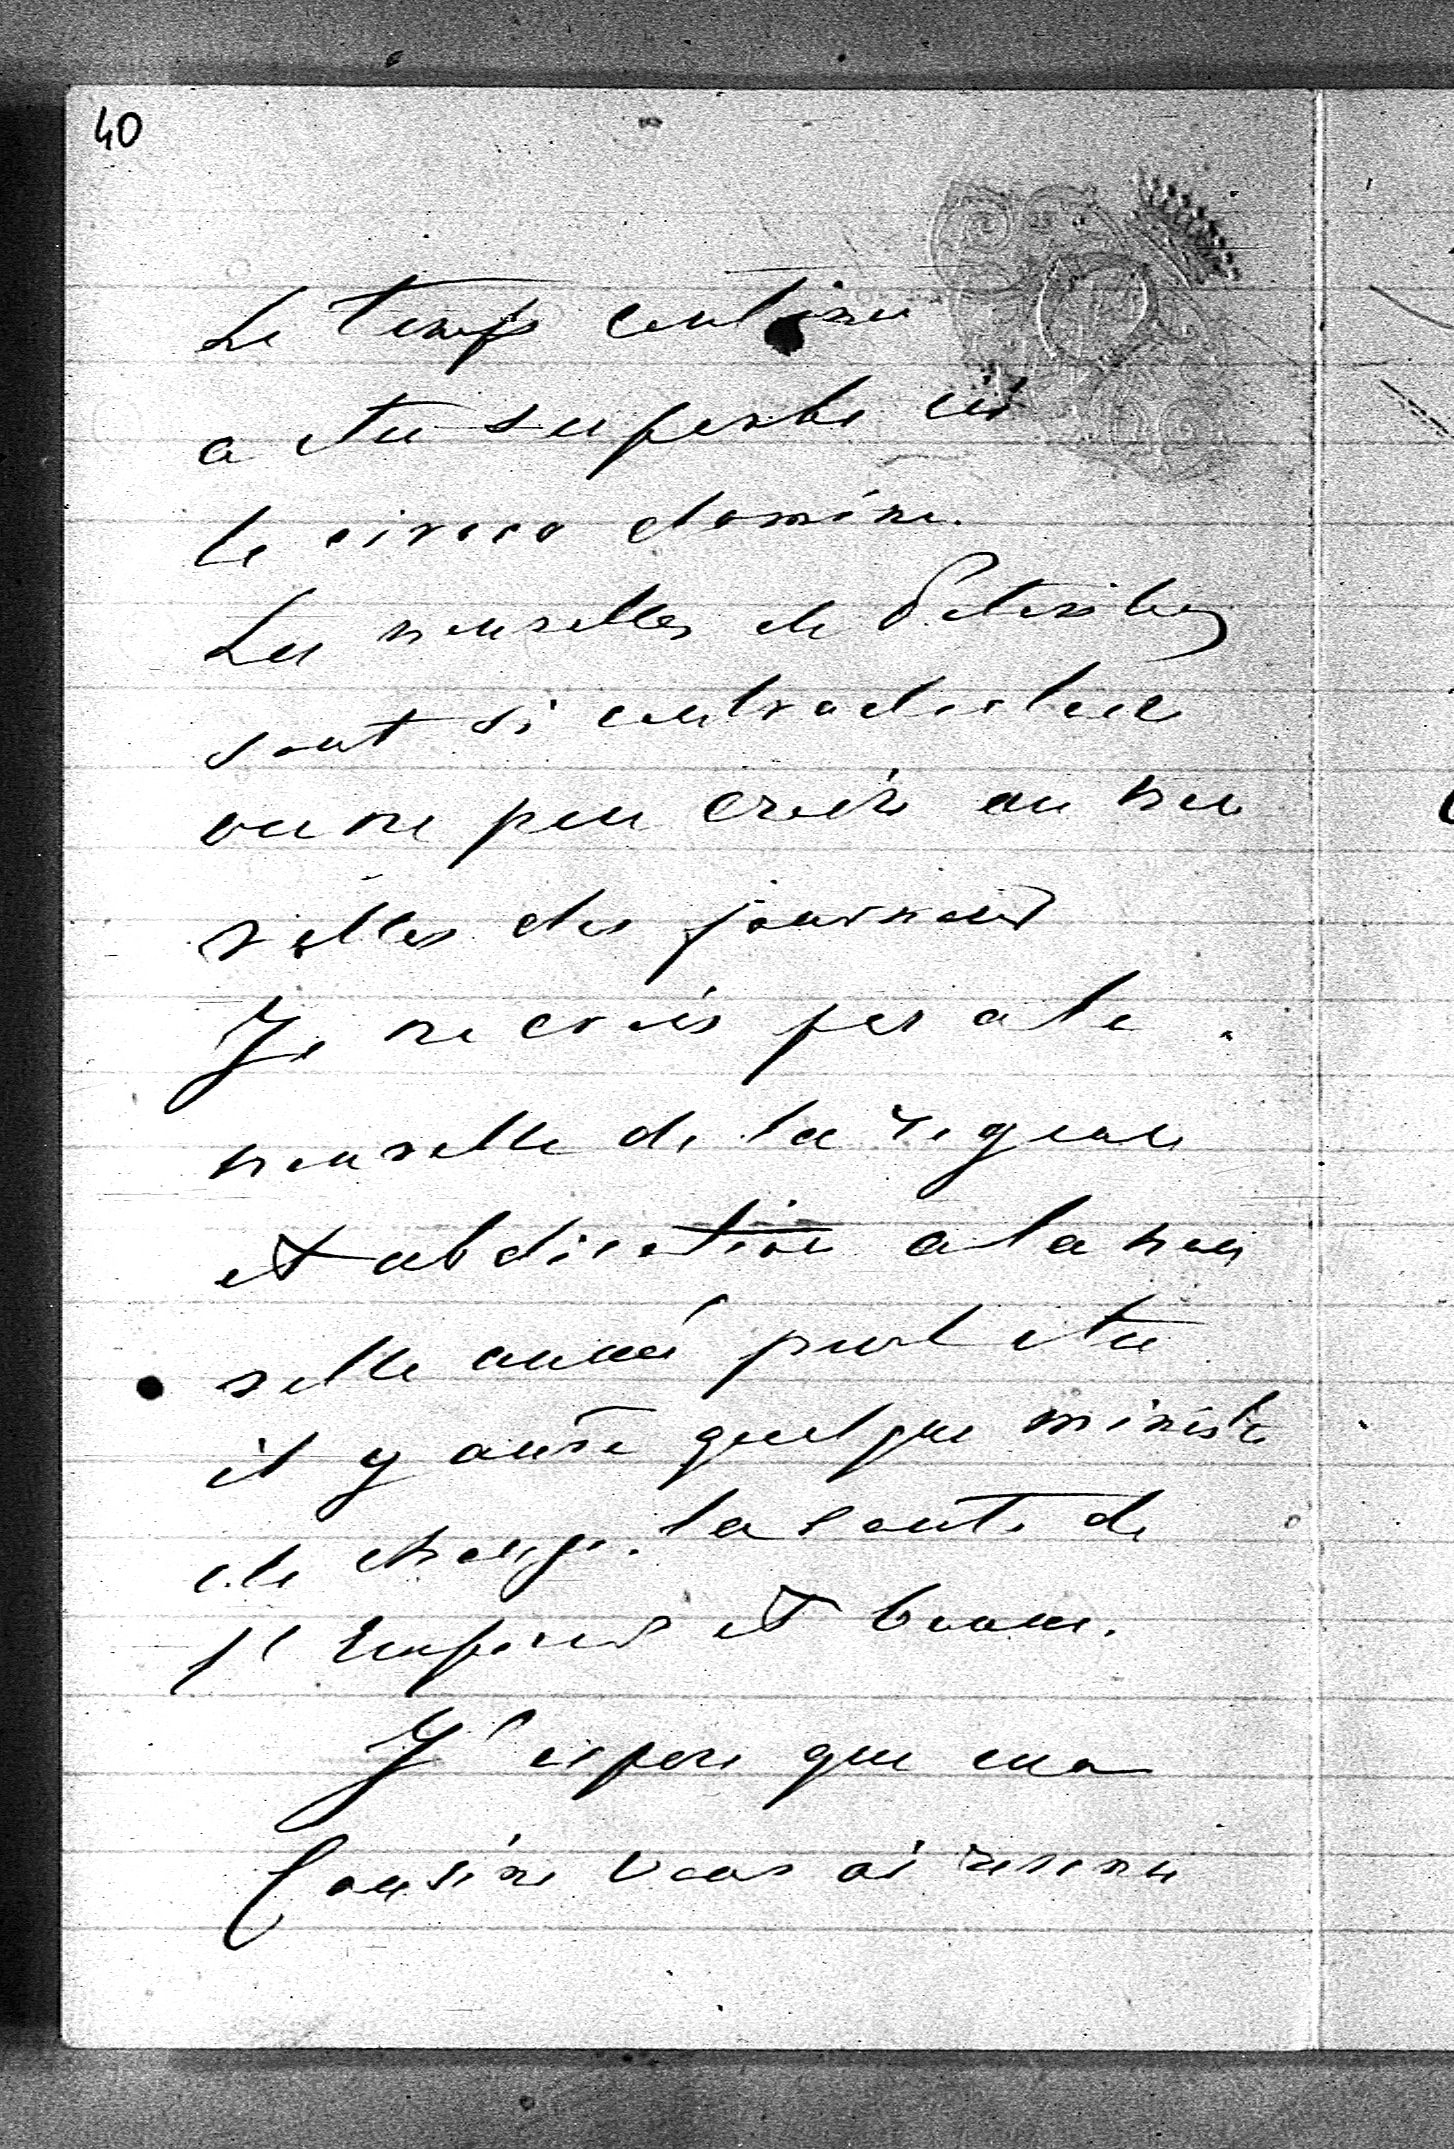 40
Le temp continue
a etre superbe ici
le siroco domine.
Les nouvelles de Petersbourg
sont si contradictoire
on ne peu croire au nou
velles des journaux
Je ne crois pas a la
nouvelle de la regence
et abdication a la nou
velle année peut etre
il y aura quelque ministre
de change. la santé de
l'Empereur et bonne.
J'espere que ma
Cousine vous ai revenue